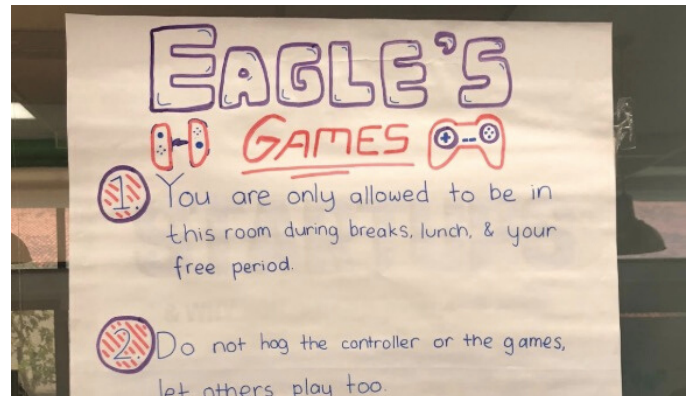 EAGLE'S
GAMES
1. You are only allowed to be in
this room during breaks, lunch, & your
free period.
2. Do not hog the controller or the games,
let others play too.